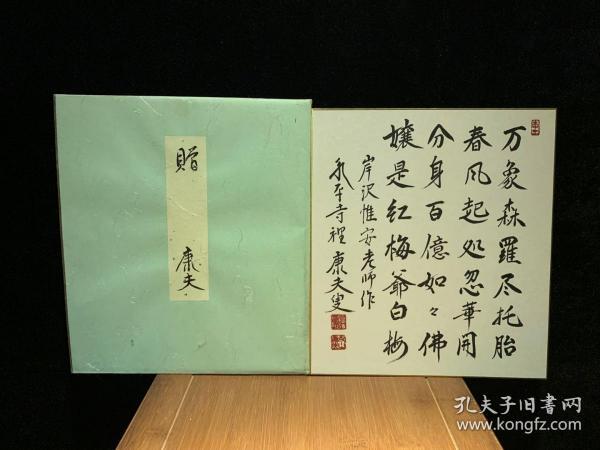 贈
康夫
万象森羅尽托胎
春风起処忽華開
分身百億如々佛
嬢是红梅爺白梅
岸沢惟安老师作
永平寺裡 康夫叟
孔夫子旧书网
www.kongfz.com